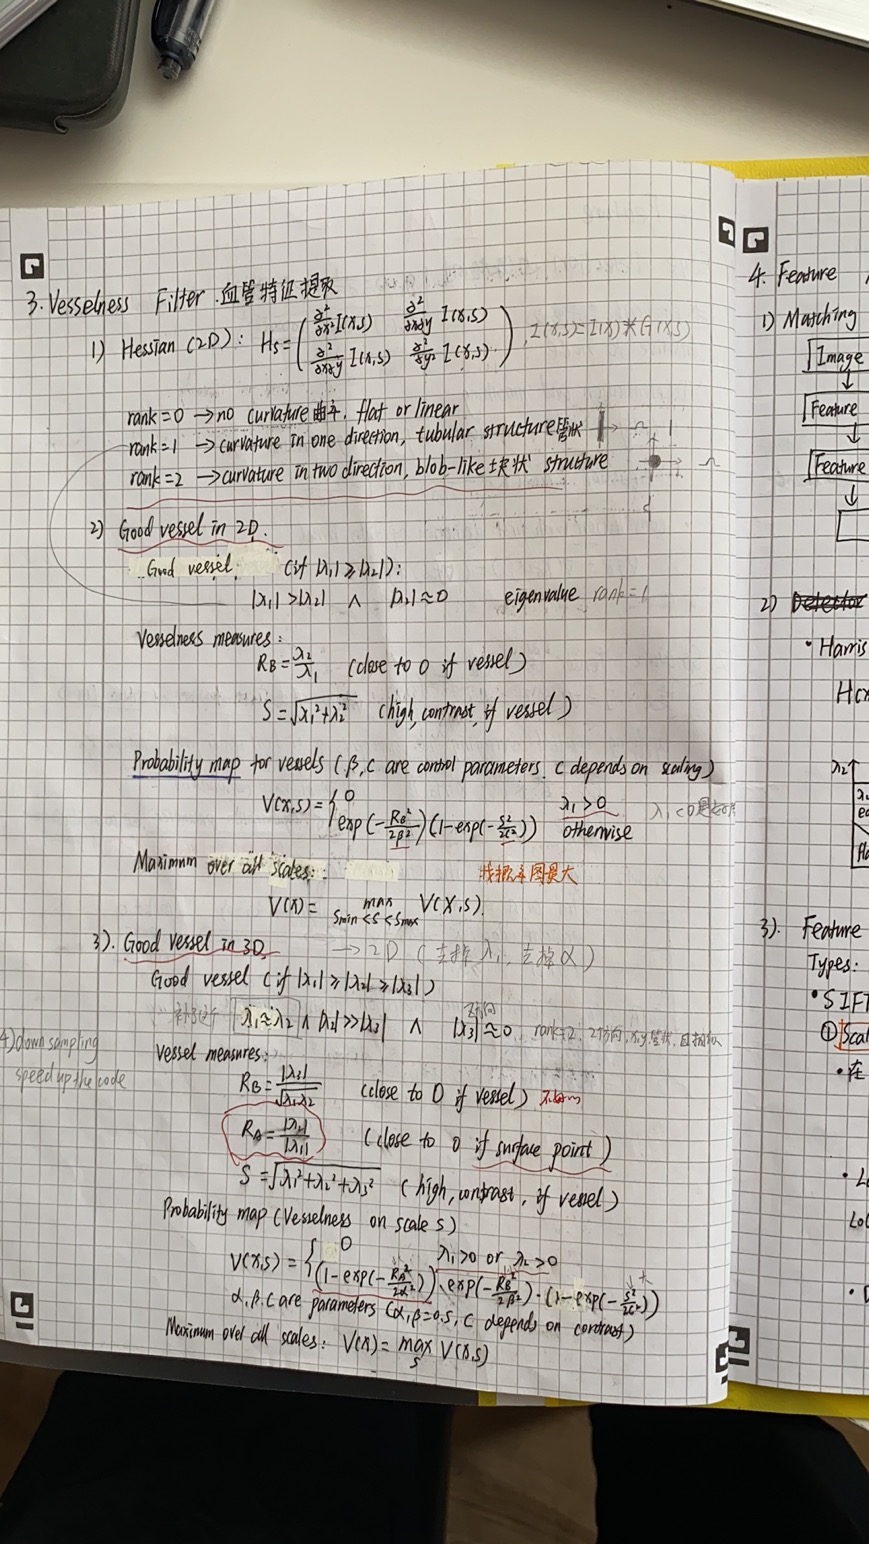 3. Vesselness Filter 血管特征提取
1) Hessian (2D): Hs = ( ∂²/∂x² I(x,s) ∂²/∂x∂y I(x,s)
∂²/∂x∂y I(x,s) ∂²/∂y² I(x,s) ) , I(x,s)=I(x)*G(x,s)
rank=0 → no curvature 曲率, flat or linear
rank=1 → curvature in one direction, tubular structure 管状
rank=2 → curvature in two direction, blob-like 块状 structure
2) Good vessel in 2D.
Good vessel (if |λ₁|≥|λ₂|):
|λ₁|>|λ₂| ∧ |λ₂|≈0 eigenvalue rank=1
Vesselness measures:
R_B = λ₂/λ₁ (close to 0 if vessel)
S = √(λ₁²+λ₂²) (high, contrast, if vessel)
Probability map for vessels (β, c are control parameters. c depends on scaling)
V(x,s) = { 0 λ₁>0
exp(-R_B²/2β²)(1-exp(-S²/2c²)) otherwise
λ₁<0
Maximum over all scales:
找概率图最大
V(x) = max Smin<s<Smax V(x,s).
3). Good vessel in 3D → 2D (去掉λ₁, 去掉α)
Good vessel (if |λ₁|≥|λ₂|≥|λ₃|)
λ₁≈λ₂ ∧ |λ₂|>>|λ₃| ∧ |λ₃|≈0 rank=2, 2个方向, x,y
4) down sampling
speed up the code
Vessel measures:
R_B = |λ₃|/√λ₁λ₂ (close to 0 if vessel)
R_A = |λ₂|/|λ₁| (close to 0 if surface point)
S = √(λ₁²+λ₂²+λ₃²) (high, contrast, if vessel)
Probability map (Vesselness on scale s)
V(x,s) = { 0 λ₁>0 or λ₂>0
(1-exp(-R_A²/2α²))·exp(-R_B²/2β²)·(1-exp(-S²/2c²))
α, β, c are parameters (α,β=0.5, c depends on contrast)
Maximum over all scales: V(x) = max s V(x,s)
4. Feature
1) Matching
Image
Feature
Feature
2) Detector
• Harris
λ₂
3). Feature
Types:
• SIFT
① Scal
• 在